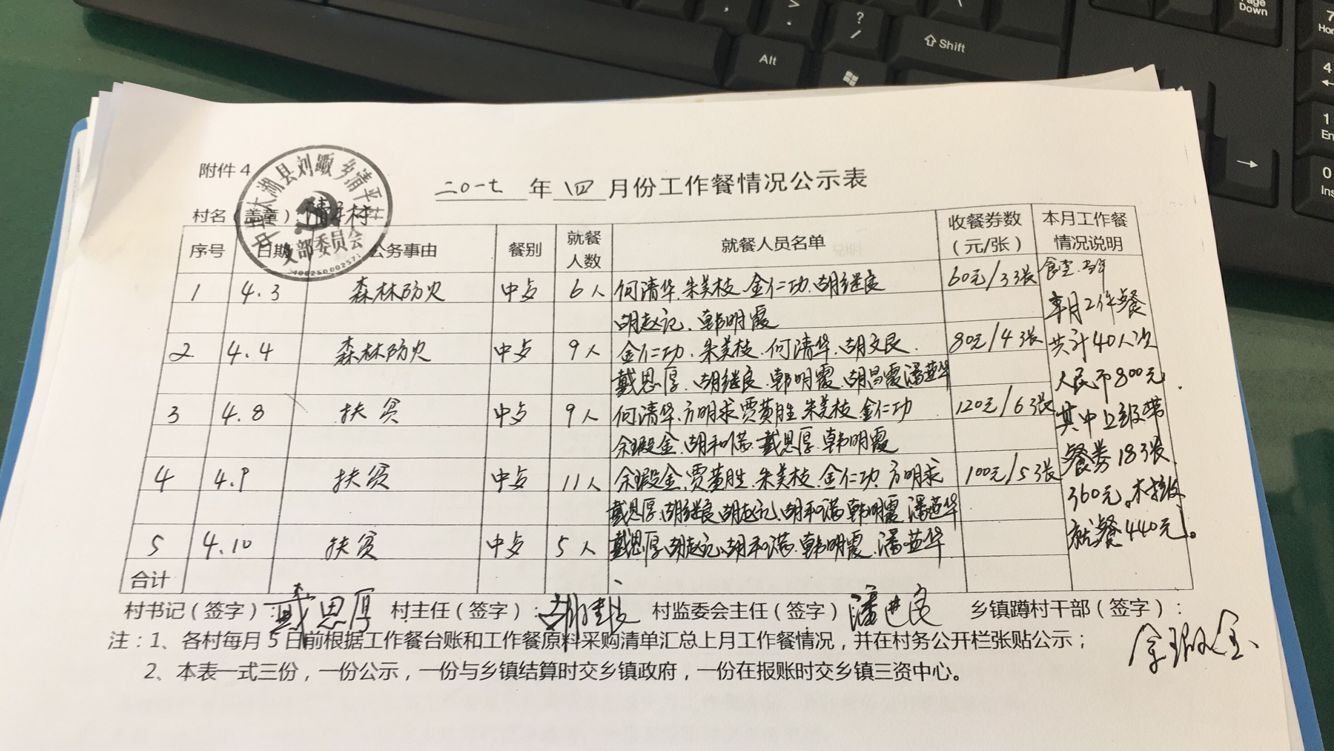 附件4
二〇一七 年 四 月份工作餐情况公示表
中共太湖县刘畈乡清平村
支部委员会
村名（盖章）：清平村
序号 日期 公务事由 餐别 就餐人数 就餐人员名单 收餐券数（元/张） 本月工作餐情况说明
1 4.3 森林防火 中 6人 何清华、朱美枝、金仁功、胡继良
胡赵记、韩明霞
60元/3张
2 4.4 森林防火 中 9人 金仁功、朱美枝、何清华、胡文良、
戴恩厚、胡继良、韩明霞、胡昌霞、潘英华
80元/4张
3 4.8 扶贫 中 9人 何清华、方明求、贾黄胜、朱美枝、金仁功
余金、胡和、戴恩厚、韩明霞
120元/6张
4 4.9 扶贫 中 11人 余金、贾黄胜、朱美枝、金仁功、方明求
戴恩厚、胡继良、胡赵记、胡和满、韩明霞、潘英华
100元/5张
5 4.10 扶贫 中 5人 戴恩厚、胡赵记、胡和满、韩明霞、潘英华
本月工作餐
共计40人次
人民币800元，
其中上级带
餐券18张
360元。本村
就餐440元。
合计
村书记（签字）：戴恩厚 村主任（签字）： 村监委会主任（签字）：潘 良 乡镇蹲村干部（签字）：
注：1、各村每月5日前根据工作餐台账和工作餐原料采购清单汇总上月工作餐情况，并在村务公开栏张贴公示；
2、本表一式三份，一份公示，一份与乡镇结算时交乡镇政府，一份在报账时交乡镇三资中心。
Alt
Shift
Page Down